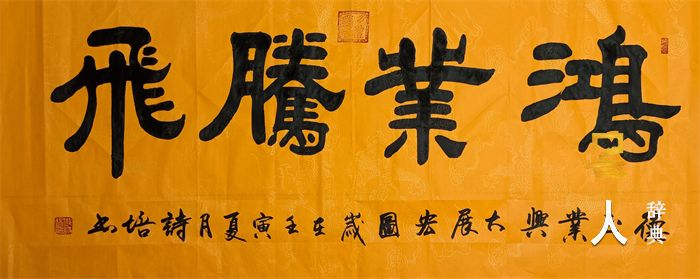 鴻業騰飛
德業興大展宏圖歲在壬寅夏月詩培书
人 辞典